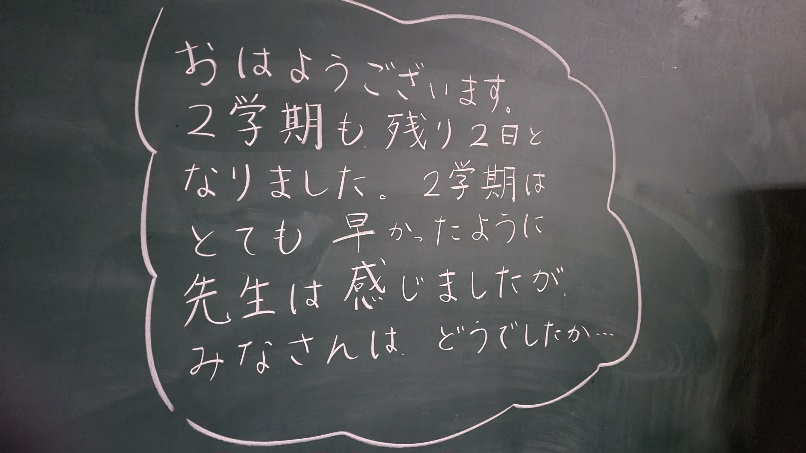 おはようございます。
2学期も残り2日と
なりました。2学期は
とても早かったように
先生は感じましたが、
みなさんは、どうでしたか…